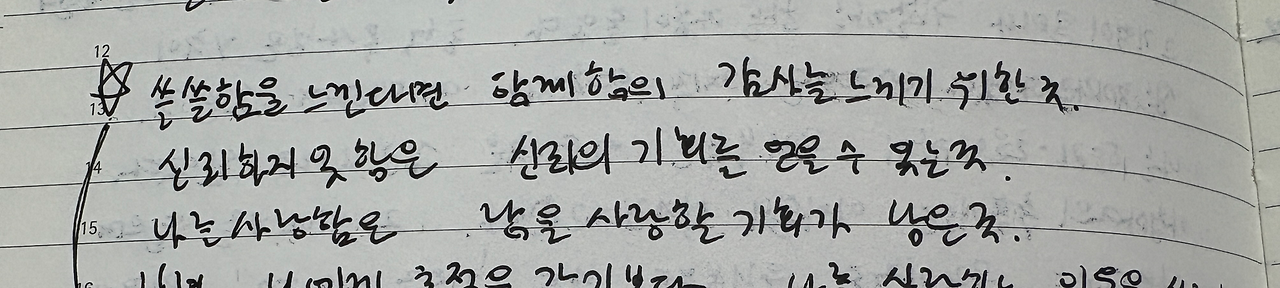 12
13 쓸쓸함을 느낀다면 함께함의 감사를 느끼기 위한 것.
14 신뢰하지 못함은 신뢰의 기회를 얻을 수 있는 것.
15 나를 사랑함은 남을 사랑할 기회가 남은 것.
16